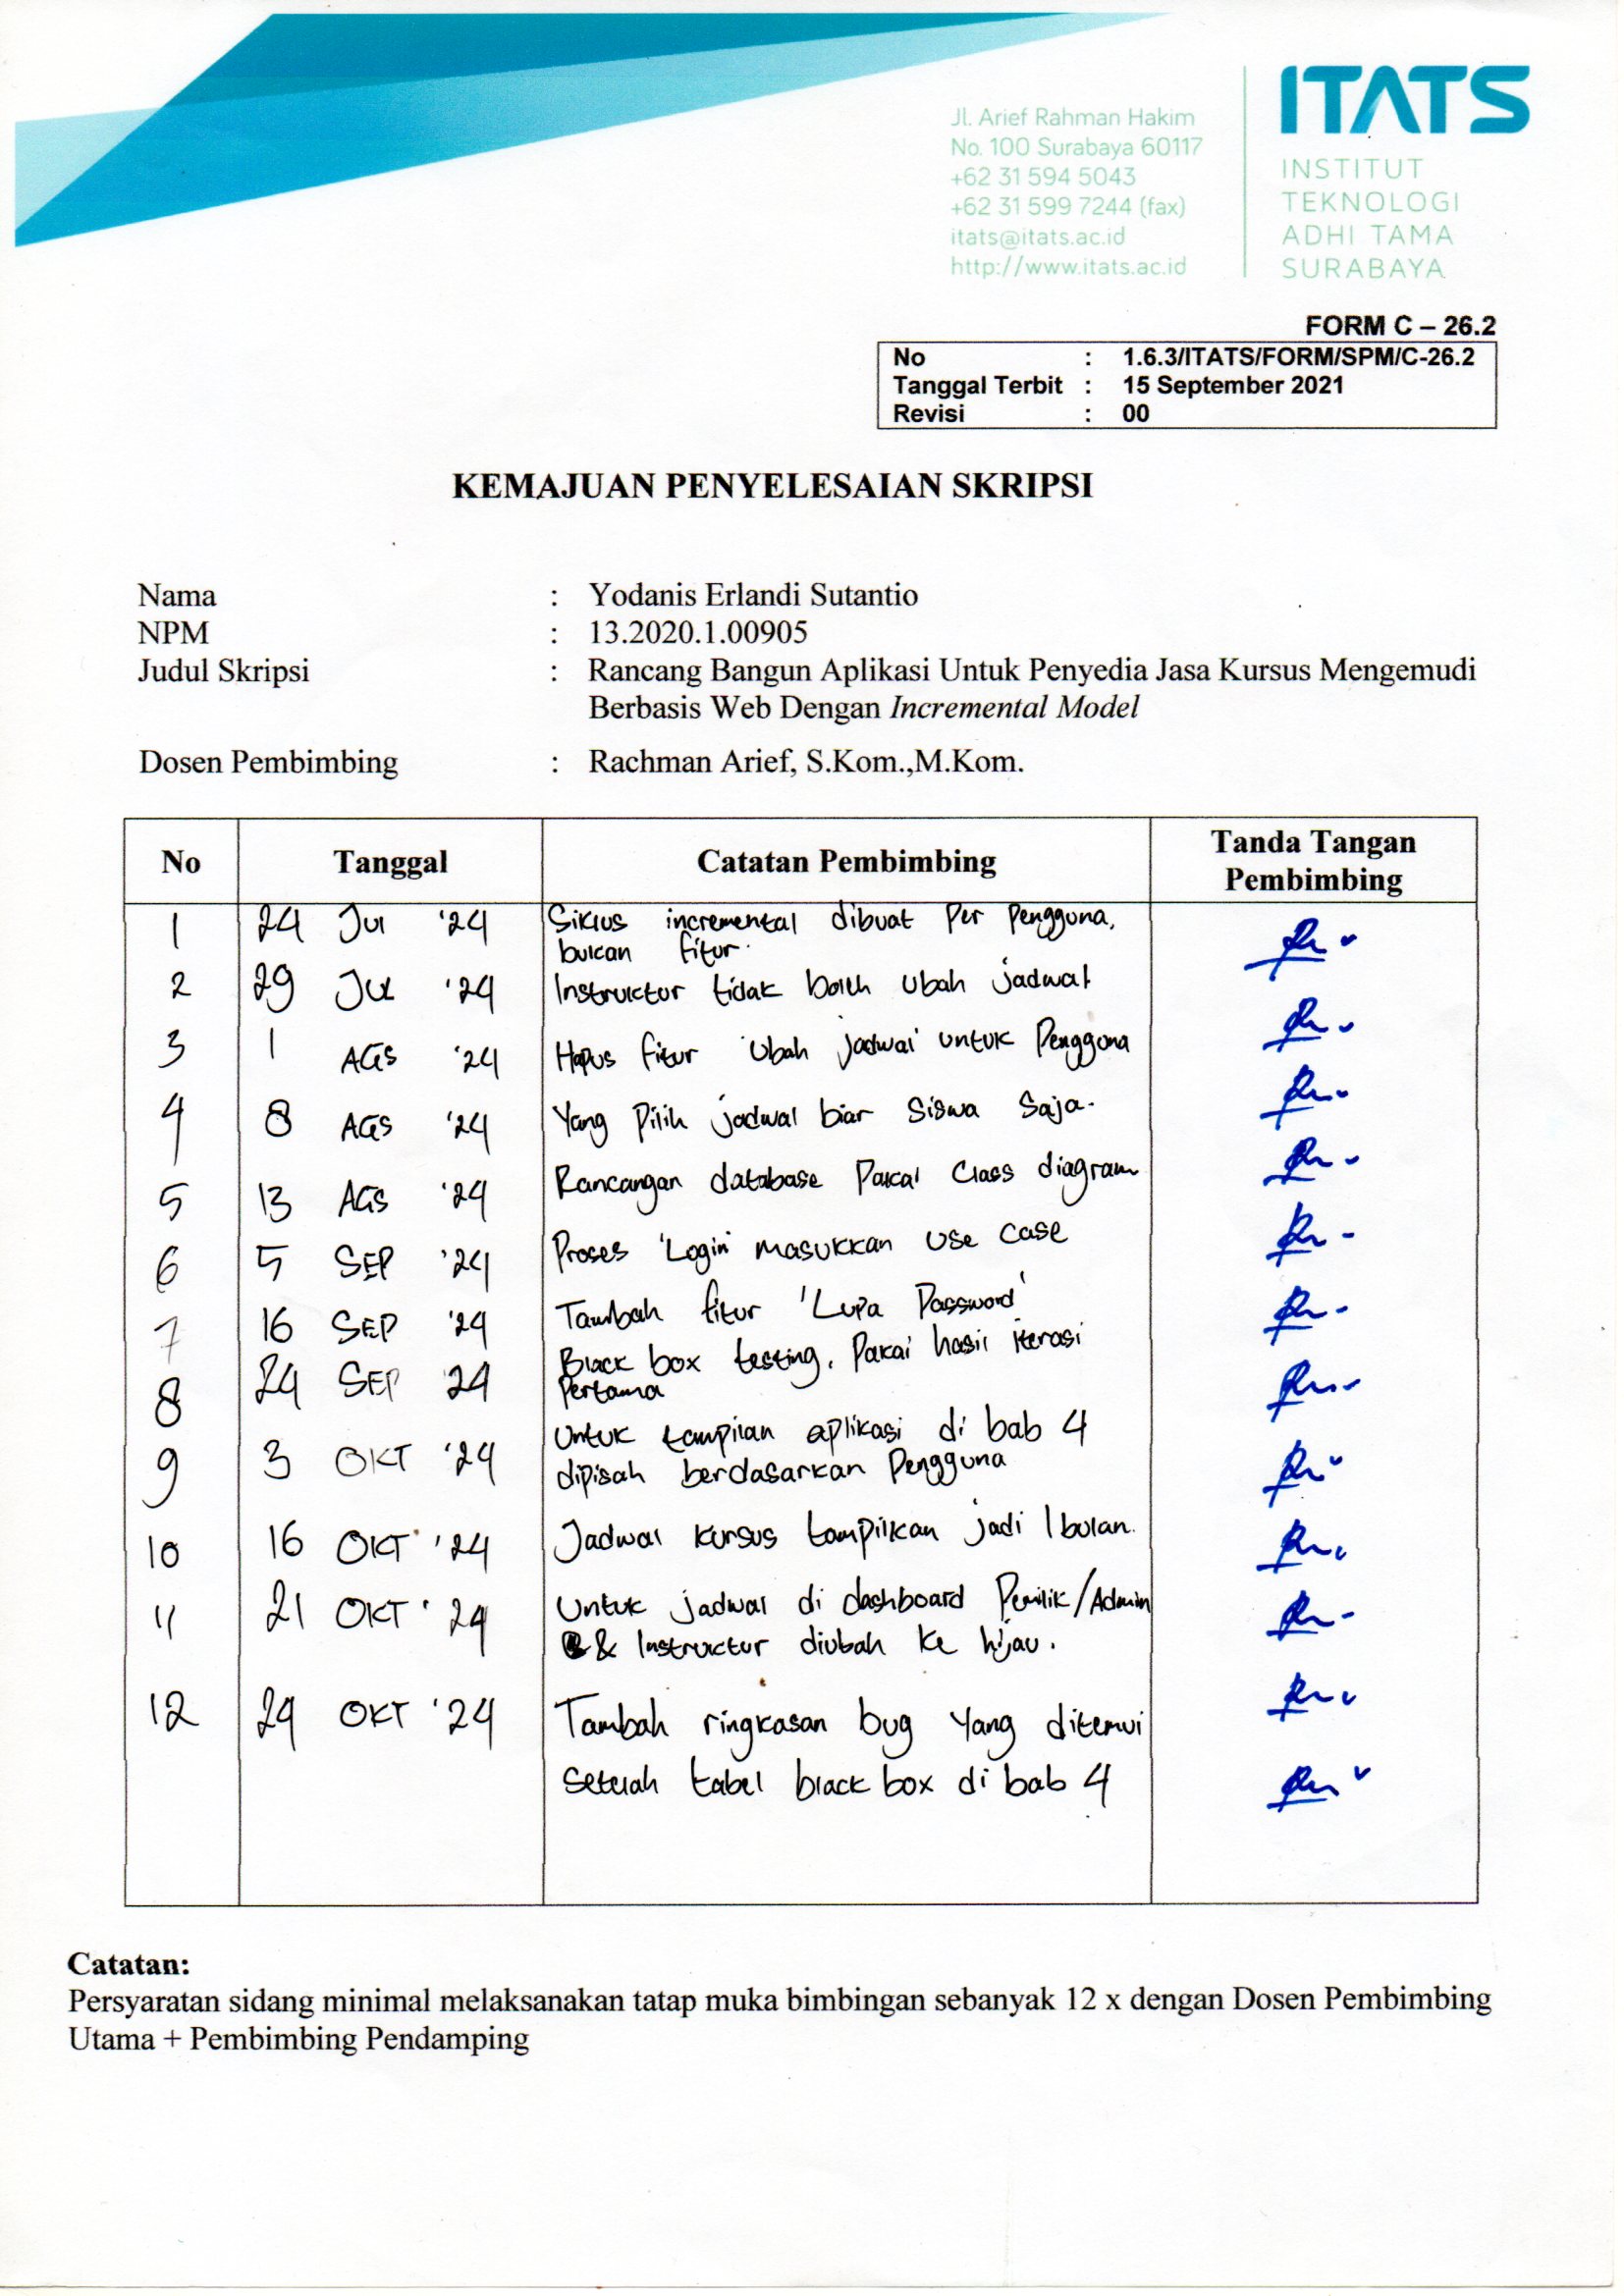 Jl. Arief Rahman Hakim
No. 100 Surabaya 60117
+62 31 594 5043
+62 31 599 7244 (fax)
itats@itats.ac.id
http://www.itats.ac.id
ITATS
INSTITUT
TEKNOLOGI
ADHI TAMA
SURABAYA
FORM C – 26.2
No : 1.6.3/ITATS/FORM/SPM/C-26.2
Tanggal Terbit : 15 September 2021
Revisi : 00
KEMAJUAN PENYELESAIAN SKRIPSI
Nama : Yodanis Erlandi Sutantio
NPM : 13.2020.1.00905
Judul Skripsi : Rancang Bangun Aplikasi Untuk Penyedia Jasa Kursus Mengemudi
Berbasis Web Dengan Incremental Model
Dosen Pembimbing : Rachman Arief, S.Kom.,M.Kom.
No Tanggal Catatan Pembimbing Tanda Tangan
Pembimbing
1 24 Jul '24 Siklus incremental dibuat Per Pengguna,
bukan fitur.
2 29 Jul '24 Instruktur tidak boleh Ubah jadwal
3 1 AGS '24 Hapus fitur 'Ubah jadwal' untuk Pengguna
4 8 AGS '24 Yang Pilih jadwal biar Siswa Saja.
5 13 AGS '24 Rancangan database Pakai Class diagram
6 5 SEP '24 Proses 'Login' masukkan use case
7 16 SEP '24 Tambah fitur 'Lupa Password'
8 24 SEP '24 Black box testing, Pakai hasil iterasi
Pertama
9 3 OKT '24 Untuk tampilan aplikasi di bab 4
dipisah berdasarkan Pengguna
10 16 OKT '24 Jadwal kursus tampilkan jadi 1 bulan.
11 21 OKT '24 Untuk jadwal di dashboard Pemilik/Admin
& Instruktur diubah ke hijau.
12 24 OKT '24 Tambah ringkasan bug Yang ditemui
Setelah tabel black box di bab 4
Catatan:
Persyaratan sidang minimal melaksanakan tatap muka bimbingan sebanyak 12 x dengan Dosen Pembimbing
Utama + Pembimbing Pendamping